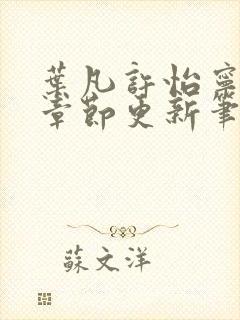 葉凡許怡寧
章節更新筆
蘇文洋